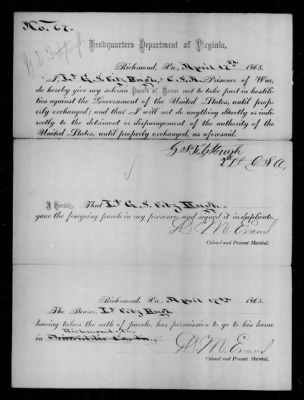 No. 67.
Headquarters Department of Virginia,
Richmond, Va., April 17th 1865.
I, Lt G. S. Fitz Hugh, C.S.A. Prisoner of War,
do hereby give my solemn Parole of Honor not to take part in hostili-
ties against the Government of the United States, until prop-
erly exchanged; and that I will not do anything directly or indi-
rectly to the detriment or disparagement of the authority of the
United States, until properly exchanged, as aforesaid.
G S Fitzhugh
2d Lt C S A
I Certify, That Lt G. S. Fitz Hugh
gave the foregoing parole in my presence and signed it in duplicate.
D. M. Evans
Colonel and Provost Marshal.
Richmond, Va., April 17th 1865.
The Bearer, Lt Fitz Hugh
having taken the oath of parole, has permission to go to his home
Richmond
in
D. M. Evans
Colonel and Provost Marshal.